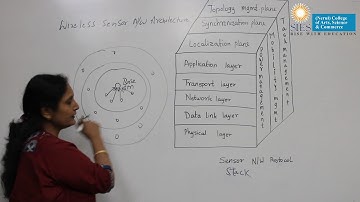 Wireless Sensor N/W Architecture
Base
Topology mgmt plane
Synchronization plane
Localization plane
Application layer
Transport layer
Network layer
Data link layer
Physical layer
Power management
Mobility mgmt
Task management
Sensor N/W Protocol
Stack
(Nerul) College
of Arts, Science
& Commerce
SIES
RISE WITH EDUCATION